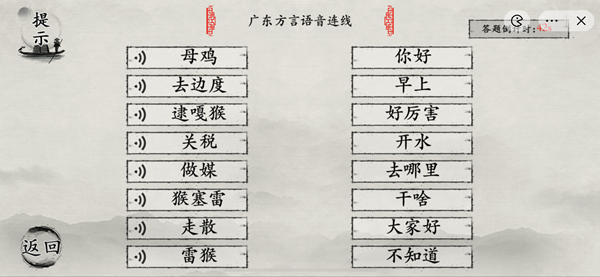 提示
广东方言语音连线
答题倒计时:42s
母鸡 你好
去边度 早上
逮嘎猴 好厉害
关税 开水
做媒 去哪里
猴塞雷 干啥
走散 大家好
雷猴 不知道
返回